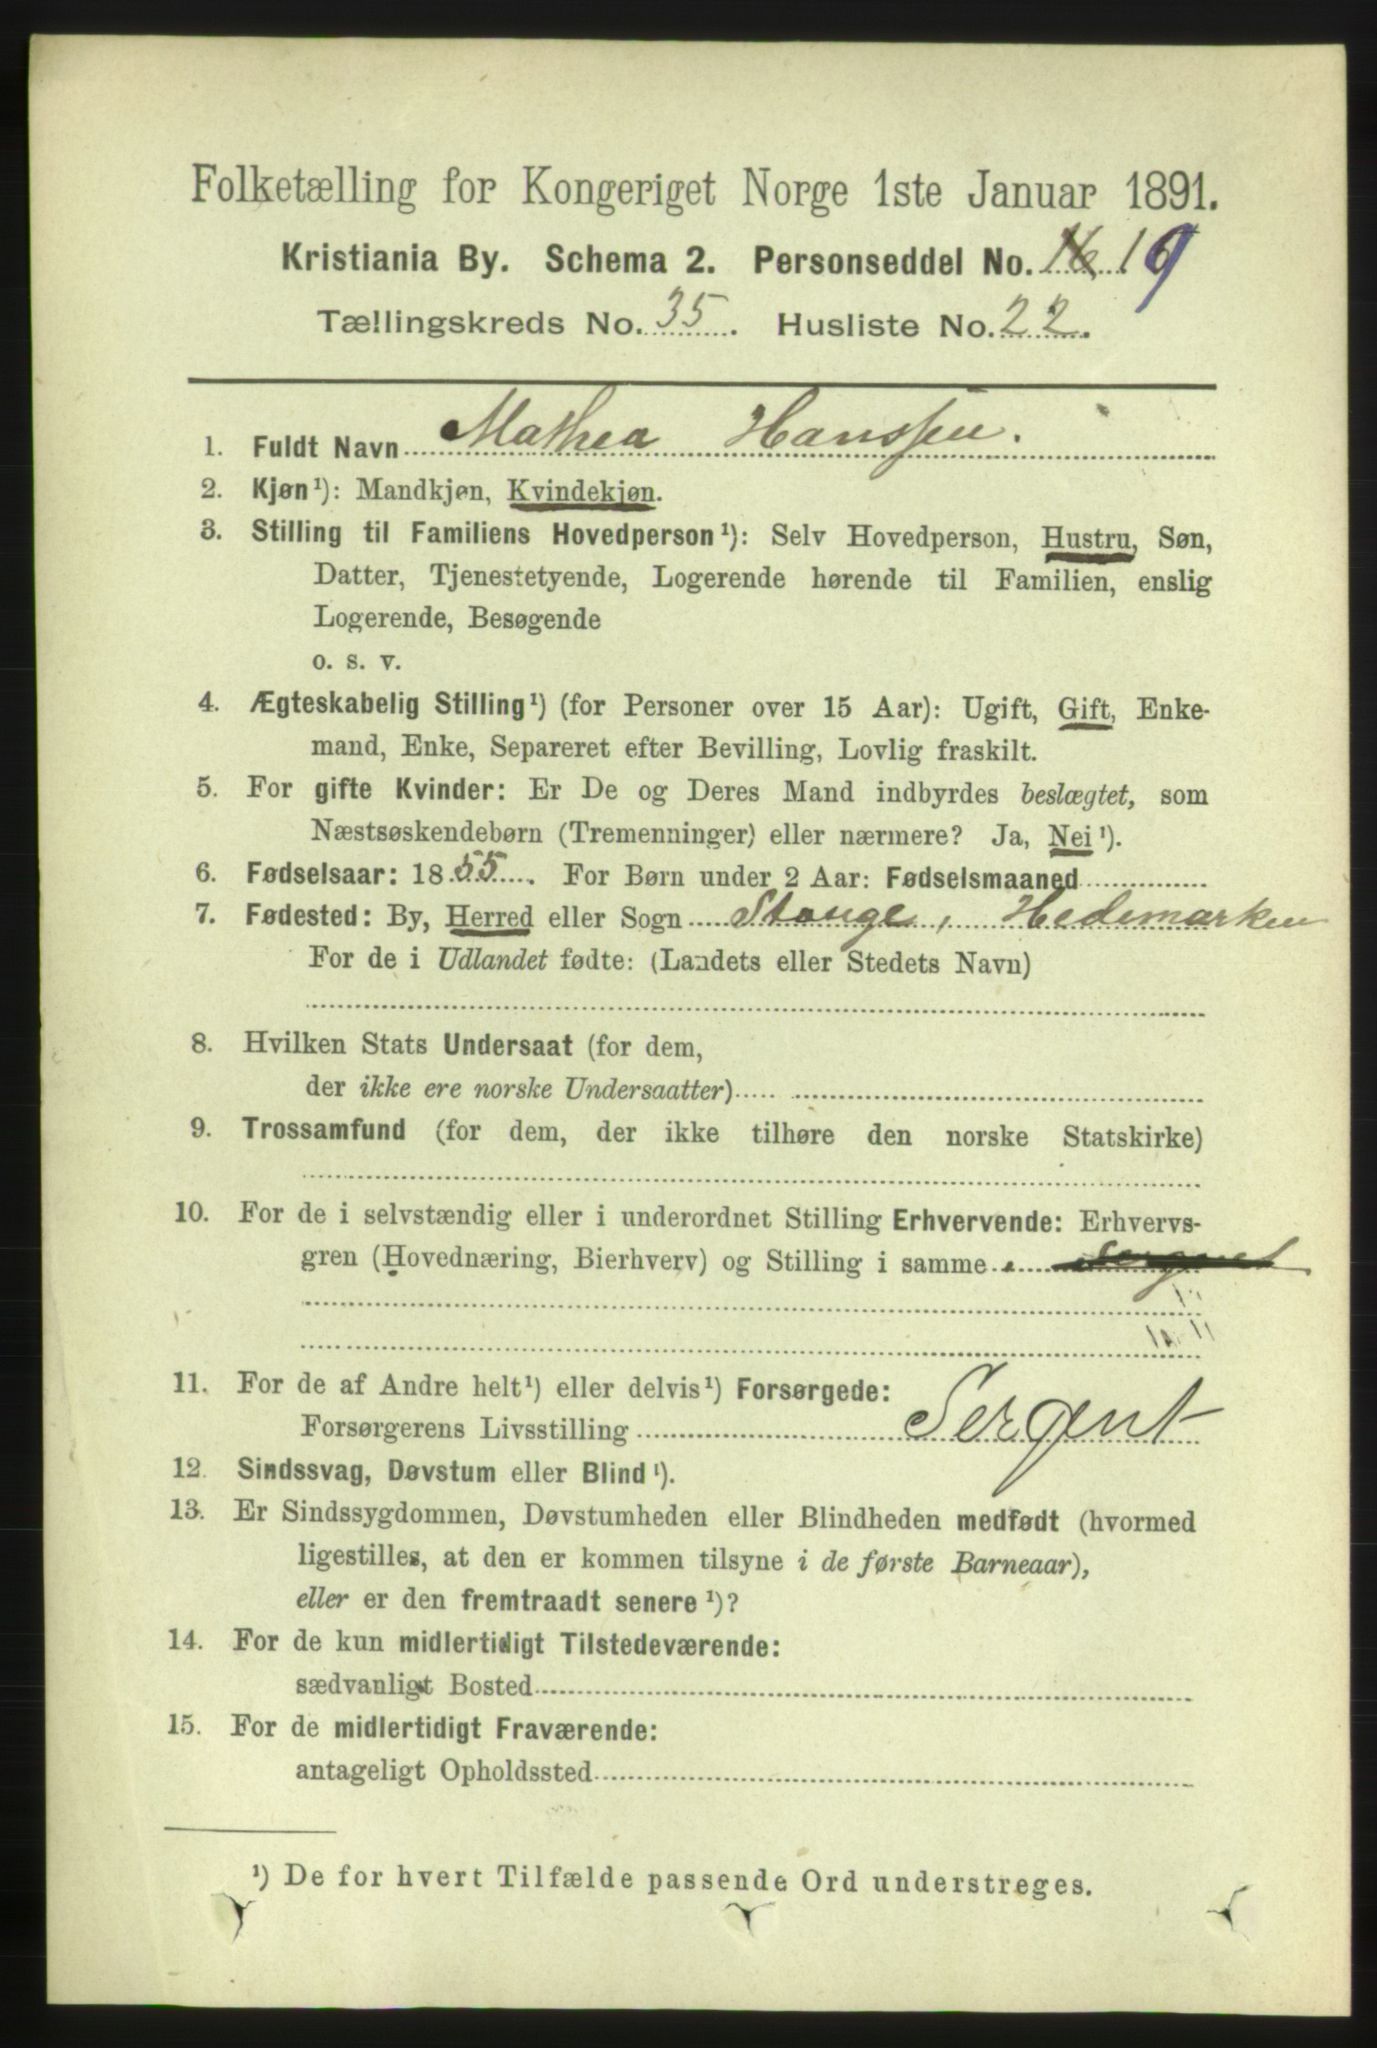 Folketælling for Kongeriget Norge 1ste Januar 1891.
Kristiania By. Schema 2. Personseddel No. 16 19
Tællingskreds No. 35. Husliste No. 22.
1. Fuldt Navn Mathea Hanssen.
2. Kjøn¹): Mandkjøn, Kvindekjøn.
3. Stilling til Familiens Hovedperson¹): Selv Hovedperson, Hustru, Søn,
Datter, Tjenestetyende, Logerende hørende til Familien, enslig
Logerende, Besøgende
o. s. v.
4. Ægteskabelig Stilling¹) (for Personer over 15 Aar): Ugift, Gift, Enke-
mand, Enke, Separeret efter Bevilling, Lovlig fraskilt.
5. For gifte Kvinder: Er De og Deres Mand indbyrdes beslægtet, som
Næstsøskendebørn (Tremenninger) eller nærmere? Ja, Nei¹).
6. Fødselsaar: 1855. For Børn under 2 Aar: Fødselsmaaned
7. Fødested: By, Herred eller Sogn Stange, Hedemarken
For de i Udlandet fødte: (Landets eller Stedets Navn)
8. Hvilken Stats Undersaat (for dem,
der ikke ere norske Undersaatter)
9. Trossamfund (for dem, der ikke tilhøre den norske Statskirke)
10. For de i selvstændig eller i underordnet Stilling Erhvervende: Erhvervs-
gren (Hovednæring, Bierhverv) og Stilling i samme Sergent
11. For de af Andre helt¹) eller delvis¹) Forsørgede:
Forsørgerens Livsstilling Sergent
12. Sindssvag, Døvstum eller Blind¹).
13. Er Sindssygdommen, Døvstumheden eller Blindheden medfødt (hvormed
ligestilles, at den er kommen tilsyne i de første Barneaar),
eller er den fremtraadt senere¹)?
14. For de kun midlertidigt Tilstedeværende:
sædvanligt Bosted
15. For de midlertidigt Fraværende:
antageligt Opholdssted
¹) De for hvert Tilfælde passende Ord understreges.